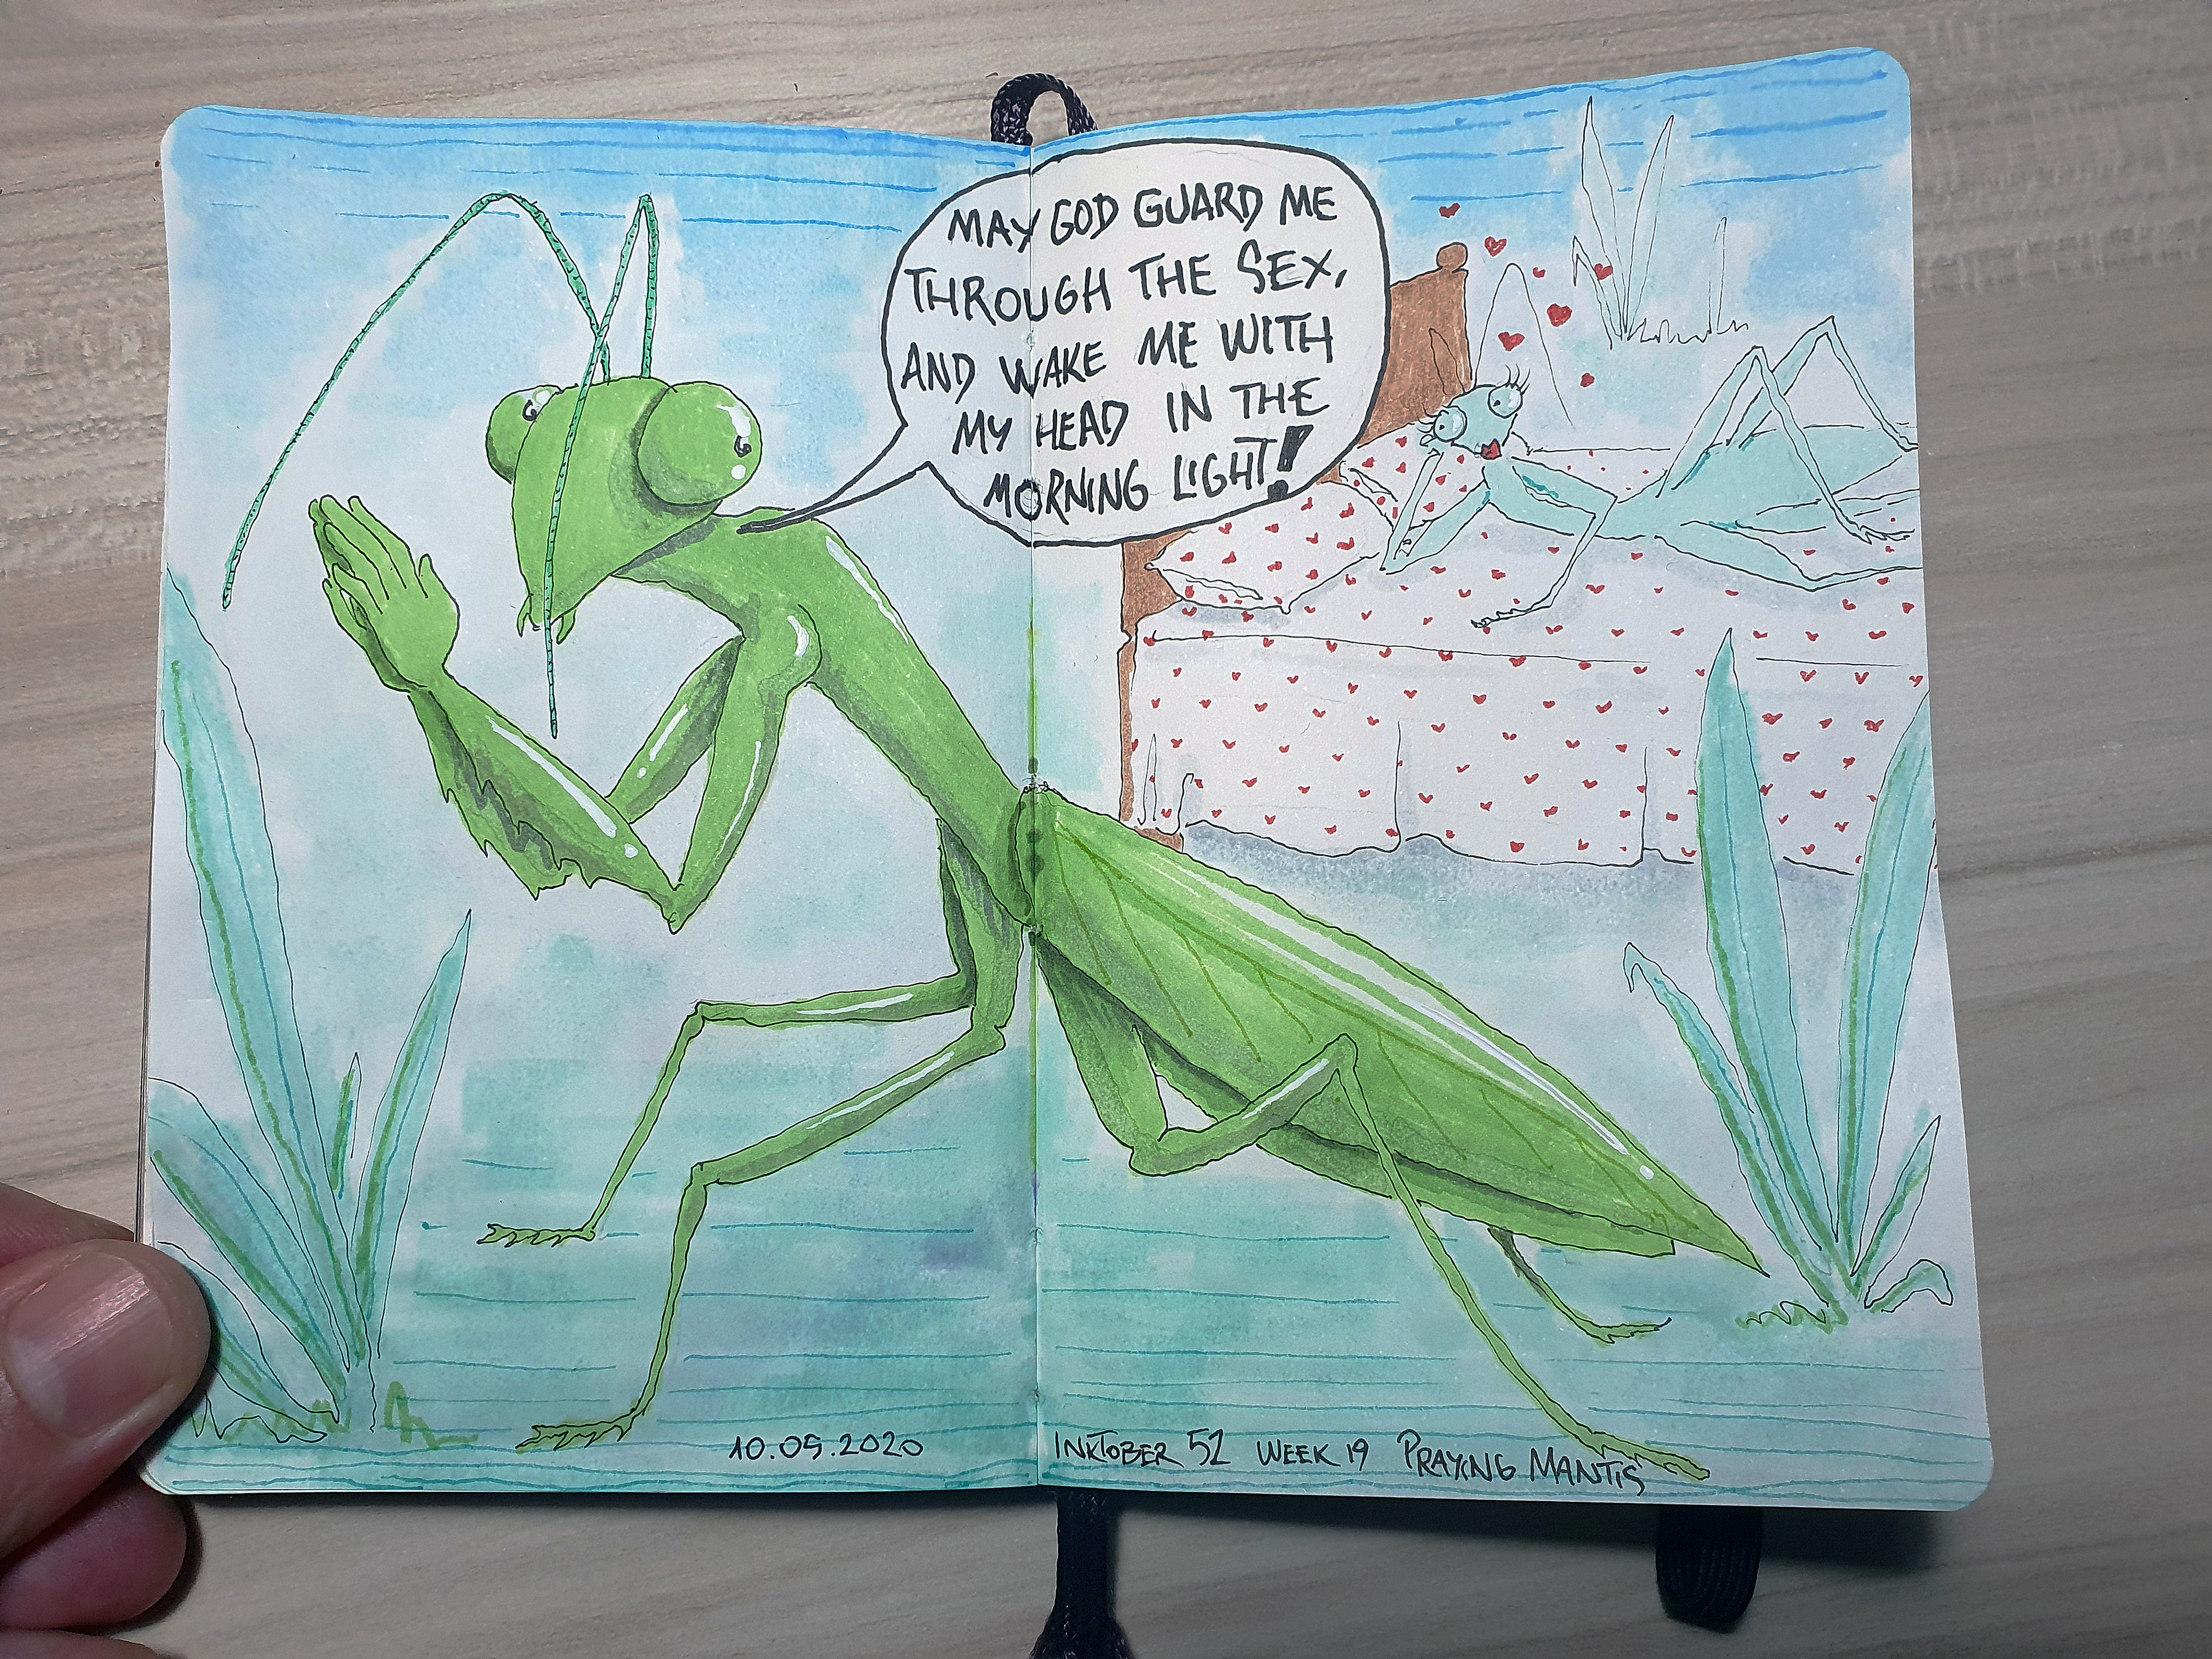 MAY GOD GUARD ME
THROUGH THE SEX,
AND WAKE ME WITH
MY HEAD IN THE
MORNING LIGHT!
10.05.2020
INKTOBER 52 WEEK 19 PRAYING MANTIS